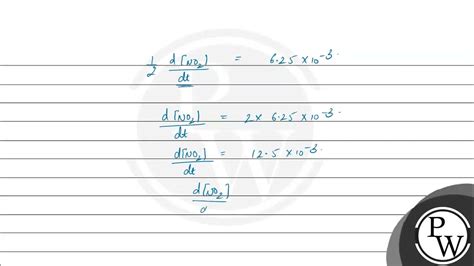 1/2 d[NO2]/dt = 6.25 × 10^-3.
d[NO2]/dt = 2 × 6.25 × 10^-3.
d[NO2]/dt = 12.5 × 10^-3.
d[NO2]/d
P
W